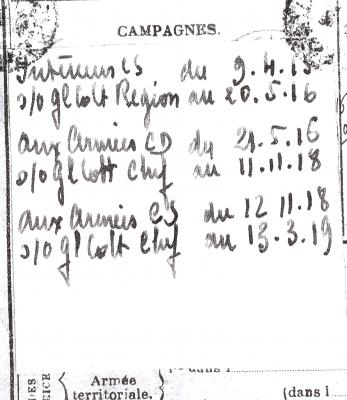 CAMPAGNES.
Intérieur CS du 9.4.15
s/o gl Cdt Region au 20.5.16
aux Armées CD du 21.5.16
s/o gl Cdt Chef au 11.11.18
aux Armées CS du 12 11.18
s/o gl Cdt Chef au 13.3.19
Armée
territoriale.
(dans l